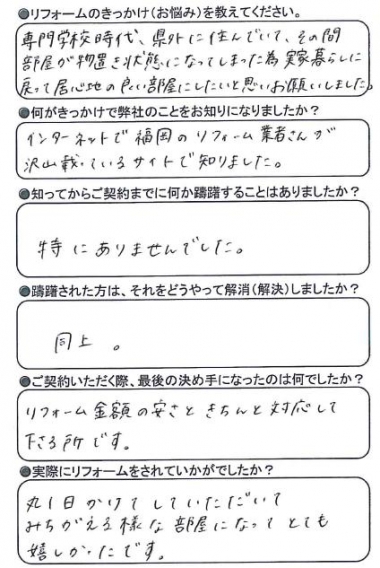 ●リフォームのきっかけ(お悩み)を教えてください。
専門学校時代、県外に住んでいて、その間
部屋が物置き状態になってしまった為 実家暮らしに
戻って居心地の良い部屋にしたいと思いお願いしました。
●何がきっかけで弊社のことをお知りになりましたか?
インターネットで福岡のリフォーム業者さんが
沢山載っているサイトで知りました。
●知ってからご契約までに何か躊躇することはありましたか?
特にありませんでした。
●躊躇された方は、それをどうやって解消(解決)しましたか?
同上 。
●ご契約いただく際、最後の決め手になったのは何でしたか?
リフォーム金額の安さときちんと対応して
下さる所です。
●実際にリフォームをされていかがでしたか?
丸1日かけてしていただいて
みちがえる様な部屋になってとても
嬉しかったです。